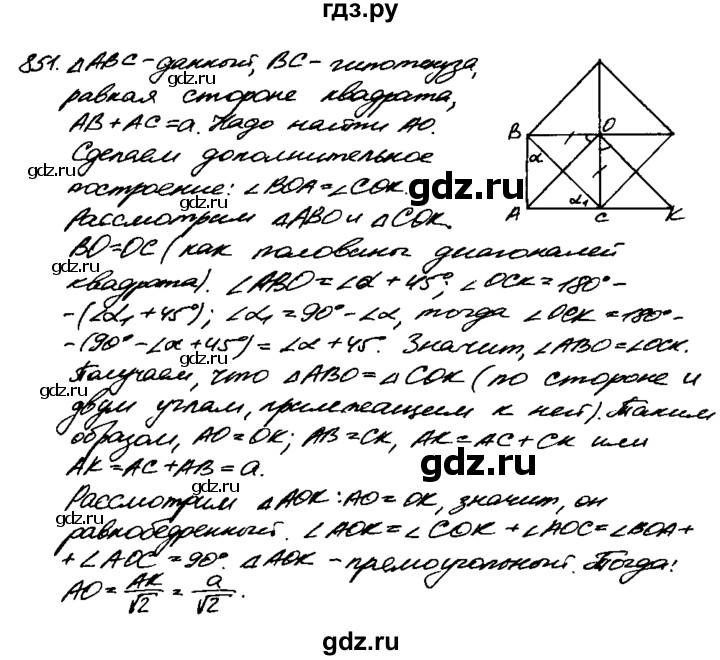 гдз.ру
851. △ABC – данный, BC – гипотенуза,
равная стороне квадрата,
AB + AC = a. Надо найти AO.
Сделаем дополнительное
построение: ∠BOA = ∠COK.
Рассмотрим △ABO и △COK.
BO = OC (как половины диагоналей
квадрата). ∠ABO = ∠α + 45°; ∠OCK = 180° -
- (∠α₁ + 45°); ∠α₁ = 90° - ∠α, тогда ∠OCK = 180° -
- (90° - ∠α + 45°) = ∠α + 45°. Значит, ∠ABO = ∠OCK.
Получаем, что △ABO = △COK (по стороне и
двум углам, прилежащим к ней). Таким
образом, AO = OK; AB = CK, AK = AC + CK или
AK = AC + AB = a.
Рассмотрим △AOK: AO = OK, значит, он
равнобедренный. ∠AOK = ∠COK + ∠AOC = ∠BOA +
+ ∠AOC = 90°. △AOK – прямоугольный. Тогда:
AO = AK/√2 = a/√2.
B
O
α
α₁
A
C
K
gdz.ru
gdz.ru
gdz.ru
gdz.ru
gdz.ru
gdz.ru
gdz.ru
gdz.ru
gdz.ru
gdz.ru
gdz.ru